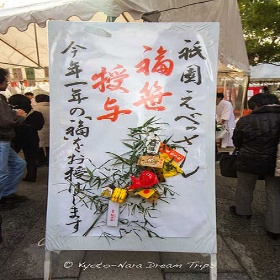 祇園えべっさん
福笹
授与
今年一年の福をお授けします
© Kyoto-Nara Dream Trips